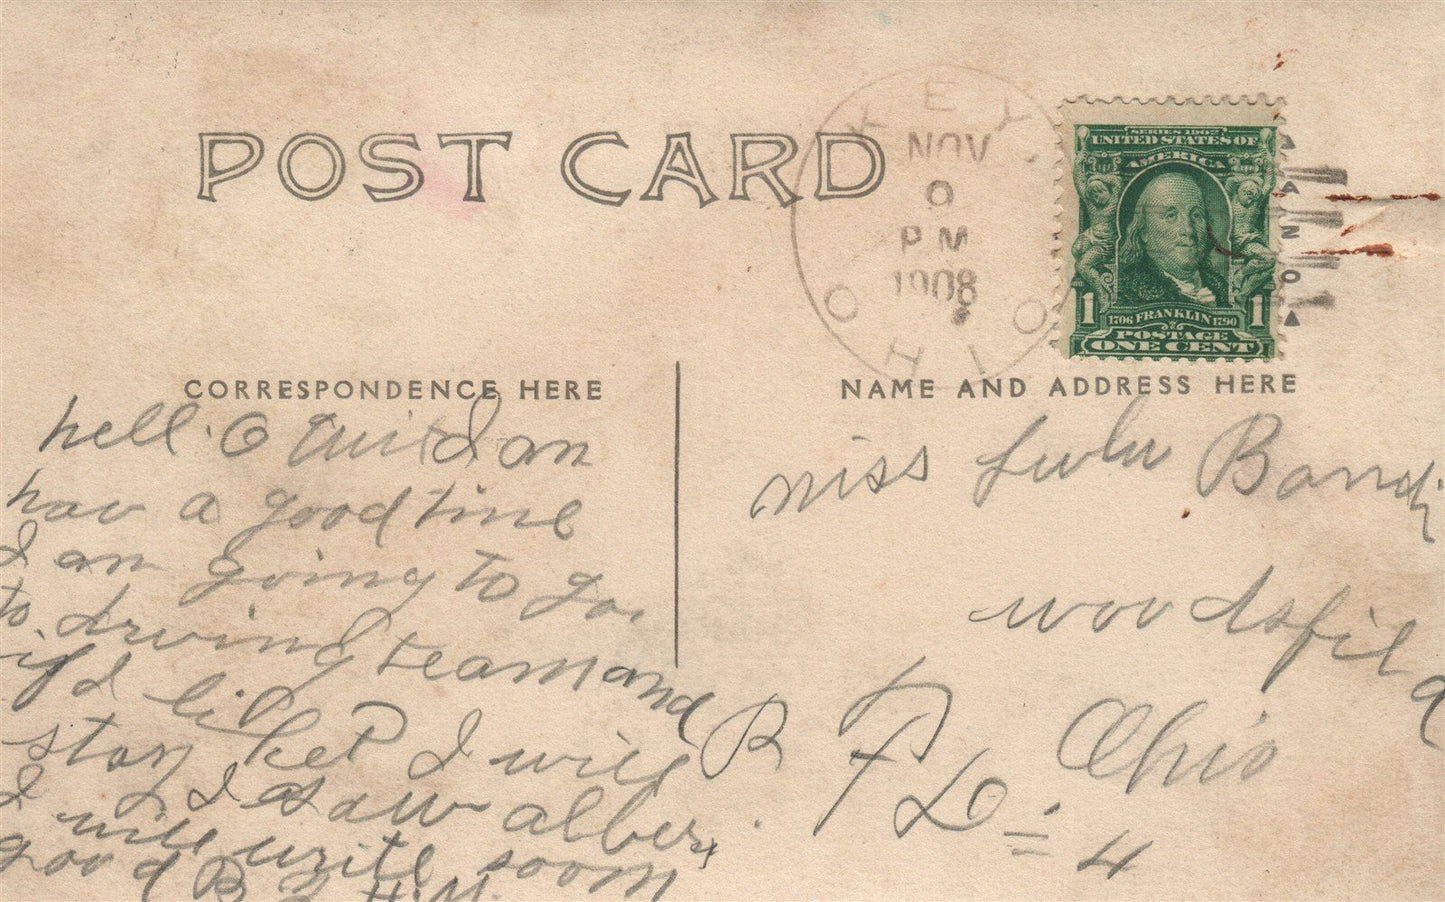 POST CARD
KEY
NOV
9
PM
1908
OHIO
SERIES 1902
UNITED STATES OF
AMERICA
1 1
1706 FRANKLIN 1790
POSTAGE
ONE CENT
CORRESPONDENCE HERE
NAME AND ADDRESS HERE
hell.o
hav a good time
I am going to go
to driving team and
if I lik
stay I will
I saw alber
I will write soom
good By H.M.
miss Lulu
woodsfild
Ohio
R F D - 4